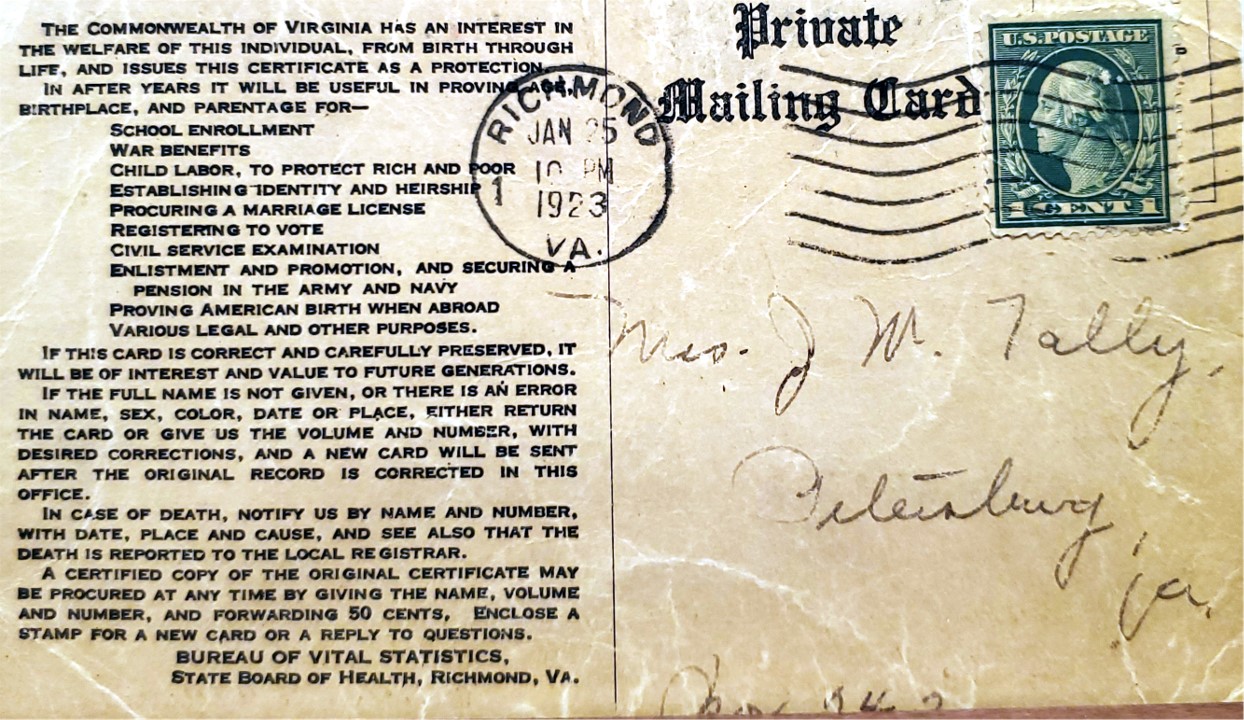 THE COMMONWEALTH OF VIRGINIA HAS AN INTEREST IN
THE WELFARE OF THIS INDIVIDUAL, FROM BIRTH THROUGH
LIFE, AND ISSUES THIS CERTIFICATE AS A PROTECTION.
IN AFTER YEARS IT WILL BE USEFUL IN PROVING AGE,
BIRTHPLACE, AND PARENTAGE FOR—
SCHOOL ENROLLMENT
WAR BENEFITS
CHILD LABOR, TO PROTECT RICH AND POOR
ESTABLISHING IDENTITY AND HEIRSHIP
PROCURING A MARRIAGE LICENSE
REGISTERING TO VOTE
CIVIL SERVICE EXAMINATION
ENLISTMENT AND PROMOTION, AND SECURING A
PENSION IN THE ARMY AND NAVY
PROVING AMERICAN BIRTH WHEN ABROAD
VARIOUS LEGAL AND OTHER PURPOSES.
IF THIS CARD IS CORRECT AND CAREFULLY PRESERVED, IT
WILL BE OF INTEREST AND VALUE TO FUTURE GENERATIONS.
IF THE FULL NAME IS NOT GIVEN, OR THERE IS AN ERROR
IN NAME, SEX, COLOR, DATE OR PLACE, EITHER RETURN
THE CARD OR GIVE US THE VOLUME AND NUMBER, WITH
DESIRED CORRECTIONS, AND A NEW CARD WILL BE SENT
AFTER THE ORIGINAL RECORD IS CORRECTED IN THIS
OFFICE.
IN CASE OF DEATH, NOTIFY US BY NAME AND NUMBER,
WITH DATE, PLACE AND CAUSE, AND SEE ALSO THAT THE
DEATH IS REPORTED TO THE LOCAL REGISTRAR.
A CERTIFIED COPY OF THE ORIGINAL CERTIFICATE MAY
BE PROCURED AT ANY TIME BY GIVING THE NAME, VOLUME
AND NUMBER, AND FORWARDING 50 CENTS, ENCLOSE A
STAMP FOR A NEW CARD OR A REPLY TO QUESTIONS.
BUREAU OF VITAL STATISTICS,
STATE BOARD OF HEALTH, RICHMOND, VA.
Private
Mailing Card
RICHMOND
JAN 25
10 PM
1
1923
VA.
U.S. POSTAGE
1 CENT 1
Mrs. J M. Tally,
Petersburg,
Va.